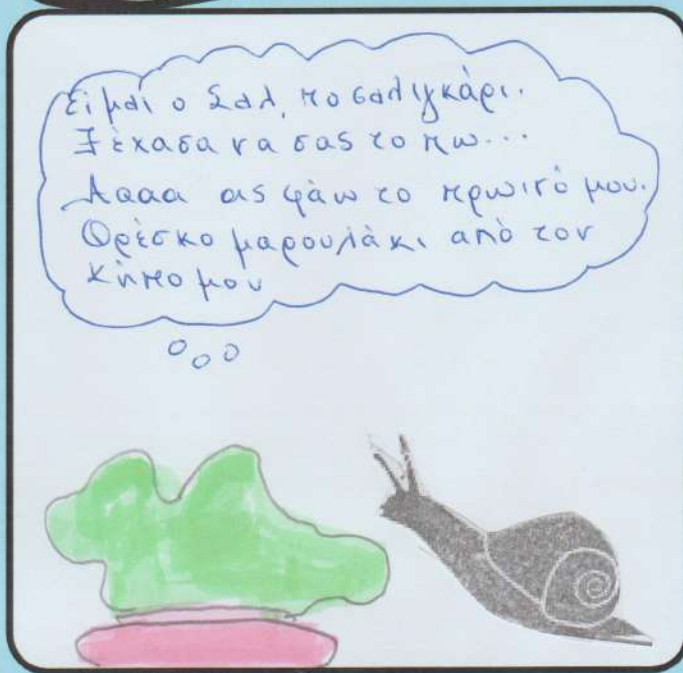 Είμαι ο Σαλ, το σαλιγκάρι.
Ξέχασα να σας το πω...
Αααα ας φάω το πρωινό μου.
Φρέσκο μαρουλάκι από τον
κήπο μου